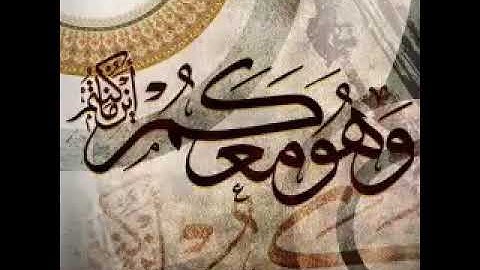 وَهُوَ مَعَكُمْ أَيْنَ مَا كُنتُمْ